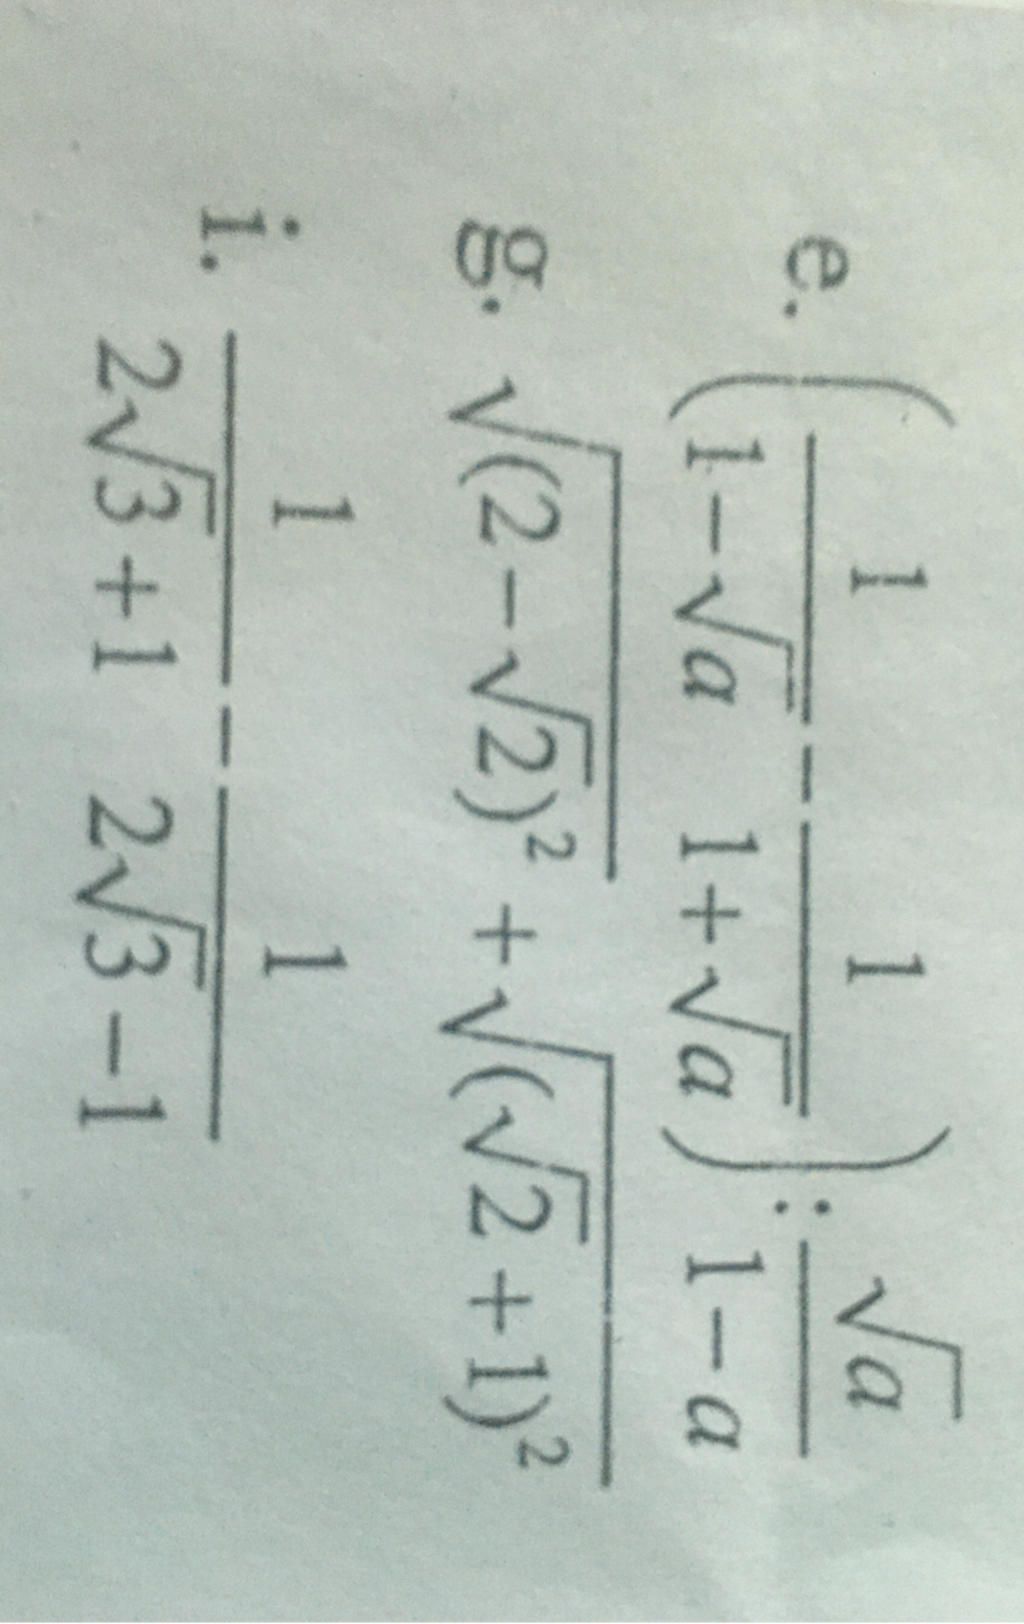 e. (1/(1-√a) - 1/(1+√a)) : √a/(1-a)
g. √((2-√2)²) + √((√2+1)²)
i. 1/(2√3+1) - 1/(2√3-1)